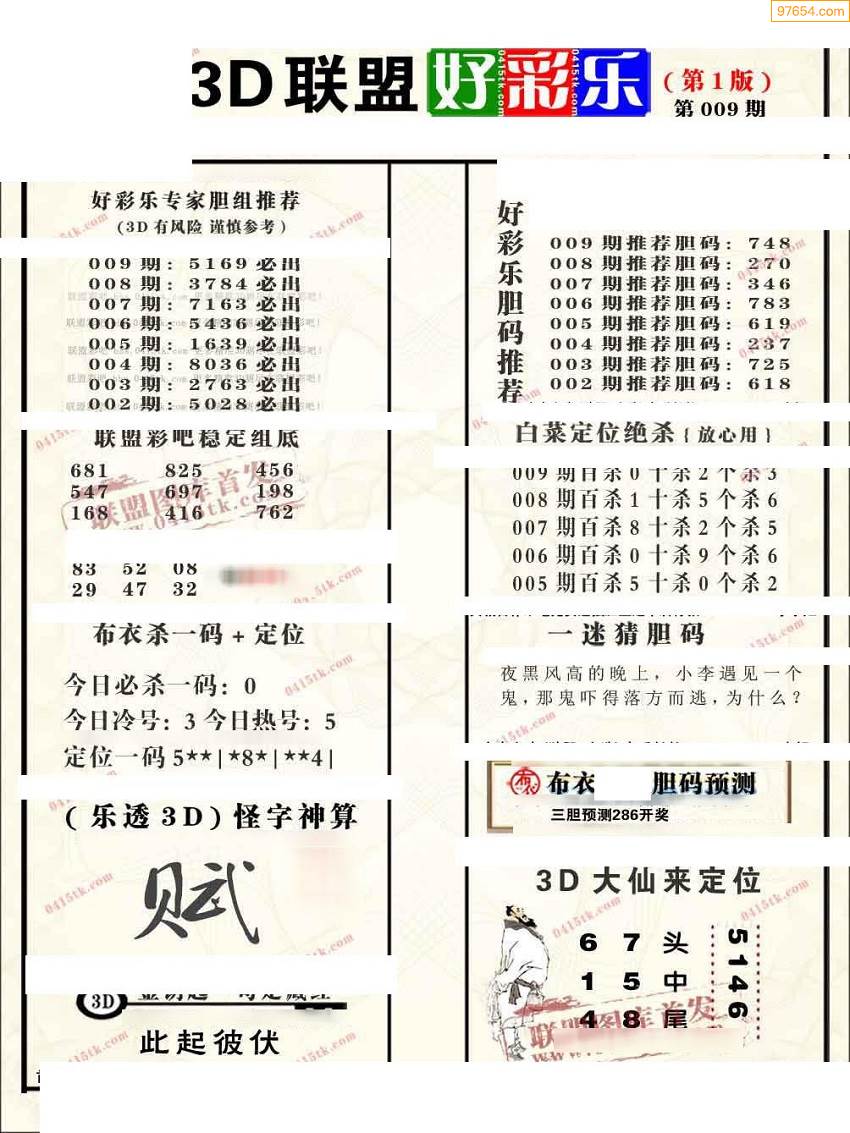 97654.com
3D联盟好彩乐
(第1版)
第009期
好彩乐专家胆组推荐
(3D有风险 谨慎参考)
009期：5169必出
008期：3784必出
007期：7163必出
006期：5436必出
005期：1639必出
004期：8036必出
003期：2763必出
002期：5028必出
联盟彩吧稳定组底
681 825 456
547 697 198
168 416 762
83 52 08
29 47 32
布衣杀一码+定位
今日必杀一码：0
今日冷号：3 今日热号：5
定位一码5**|*8*|**4|
(乐透3D)怪字神算
赋
3D
此起彼伏
好彩乐胆码推荐
009期推荐胆码：748
008期推荐胆码：270
007期推荐胆码：346
006期推荐胆码：783
005期推荐胆码：619
004期推荐胆码：237
003期推荐胆码：725
002期推荐胆码：618
白菜定位绝杀{放心用}
009期百杀0十杀2个杀3
008期百杀1十杀5个杀6
007期百杀8十杀2个杀5
006期百杀0十杀9个杀6
005期百杀5十杀0个杀2
一迷猜胆码
夜黑风高的晚上，小李遇见一个
鬼，那鬼吓得落方而逃，为什么？
布衣 胆码预测
三胆预测286开奖
3D大仙来定位
6 7 头
1 5 中
4 8 尾
5146
联盟图库首发
www.0415tk.com
0415tk.com